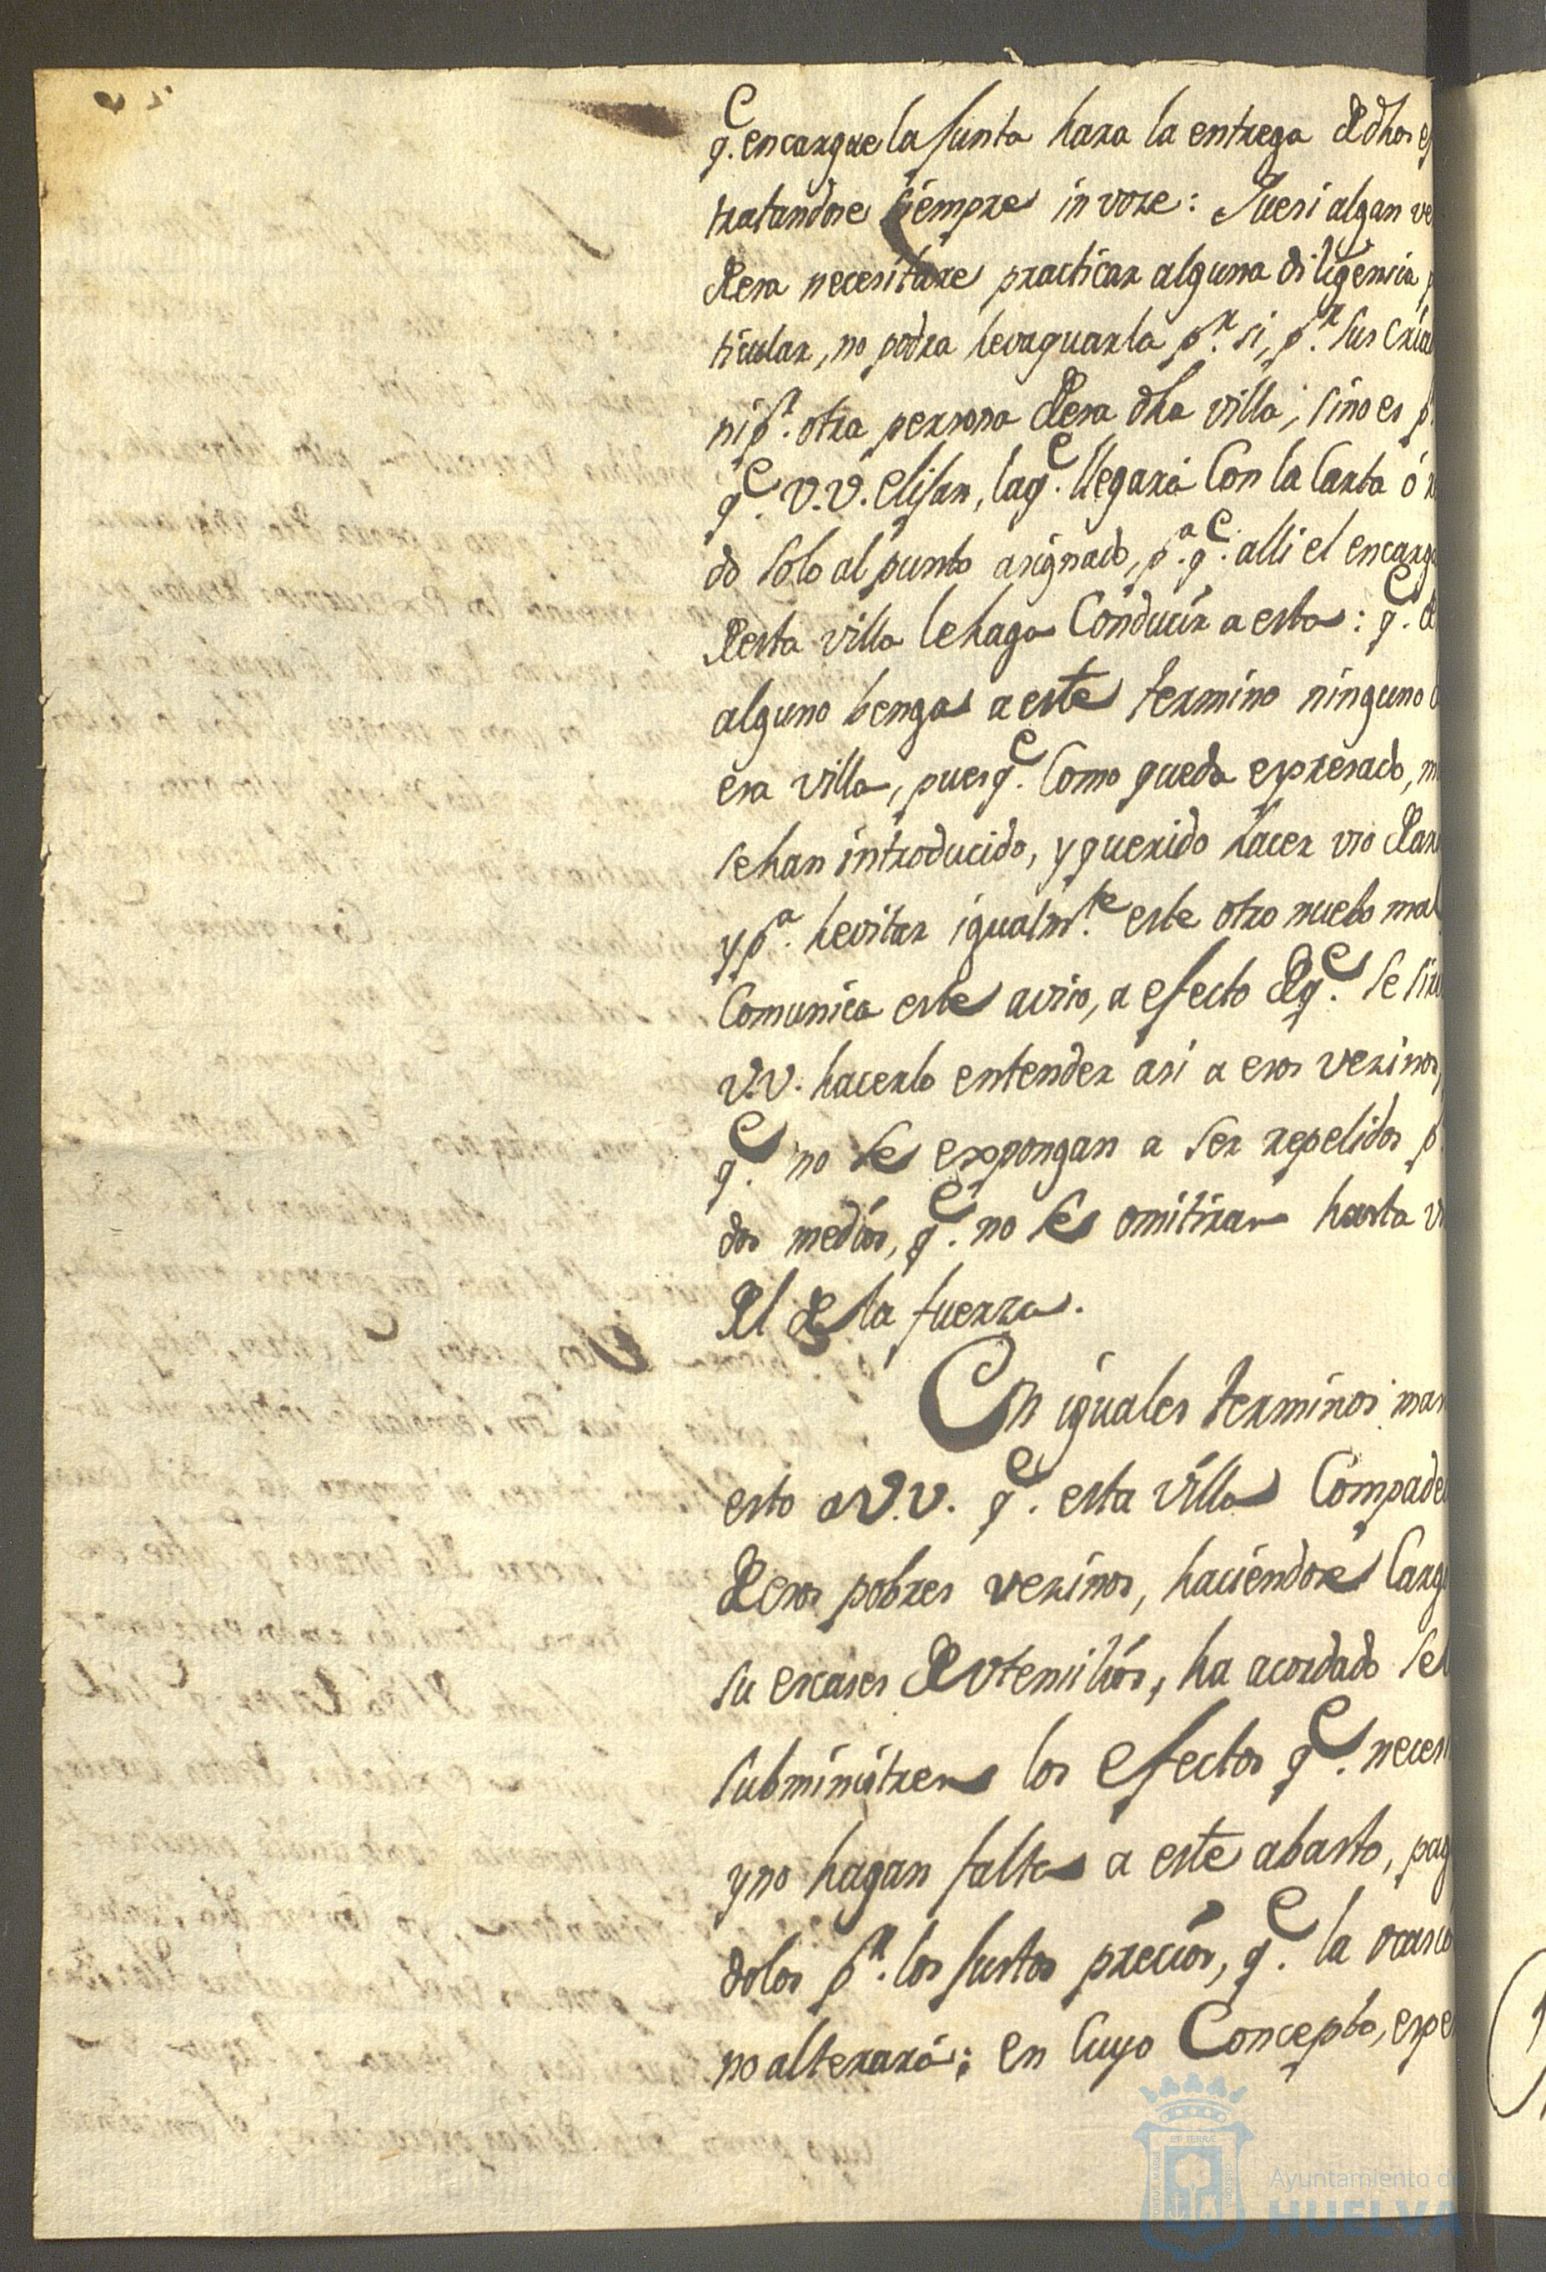 q.e encargue la Junta hara la entrega de dhos ef
tratandose siempre in voze: Que si algun ve
de esa necesitare practicar alguna diligencia p
ticular, no podra hevaquarla p.r si, p.r sus Cria
ni p.r otra persona de esa dha villa; sino es p
q.e V.V. elijan, la q.e llegará Con la Carta ó
do solo al punto asignado, p.a q.e alli el encarg
de esta villa le haga Conducir a esta: q.e de
alguno benga a este termino ninguno
esa villa, pues q.e Como queda expresado, m
se han introducido, y querido hacer uso de ar
y p.a hevitar igualm.te este otro nuebo mal
Comunica este aviso, a efecto de q.e se sir
V.V. hacerlo entender asi a esos vezinos,
q.e no se expongan a ser repelidos p
dos medios, q.e no se omitiran hasta v
del de la fuerza.
En iguales terminos man
esto a V.V. q.e esta villa Compade
de esos pobres vezinos, haciendose Carg
su escases de utensilios, ha acordado se l
subministren los efectos q.e neces
y no hagan falta a este abasto, pag
dolos p.r los justos precios, q.e la ocasio
no alterará; en cuyo Concepto, espe
Ayuntamiento de
HUELVA